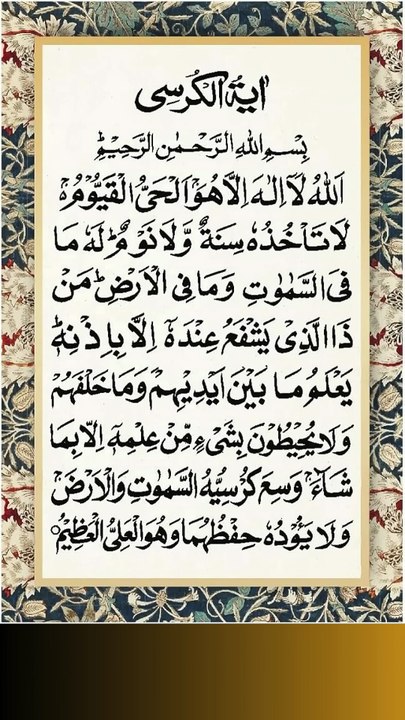 اٰیة الکرسی
بِسْمِ اللهِ الرَّحْمٰنِ الرَّحِیْمِ
اَللهُ لَآ اِلٰهَ اِلَّا هُوَ اَلْحَیُّ الْقَیُّوْمُ ۚ
لَا تَاْخُذُهٗ سِنَةٌ وَّلَا نَوْمٌ ؕ لَهٗ مَا
فِی السَّمٰوٰتِ وَمَا فِی الْاَرْضِ ؕ مَنْ
ذَا الَّذِیْ یَشْفَعُ عِنْدَهٗۤ اِلَّا بِاِذْنِهٖ ؕ
یَعْلَمُ مَا بَیْنَ اَیْدِیْهِمْ وَمَا خَلْفَهُمْ ۚ
وَلَا یُحِیْطُوْنَ بِشَیْءٍ مِّنْ عِلْمِهٖۤ اِلَّا بِمَا
شَآءَ ۚ وَسِعَ کُرْسِیُّهُ السَّمٰوٰتِ وَالْاَرْضَ ۚ
وَلَا یَـُٔوْدُهٗ حِفْظُهُمَا وَهُوَ الْعَلِیُّ الْعَظِیْمُ ○